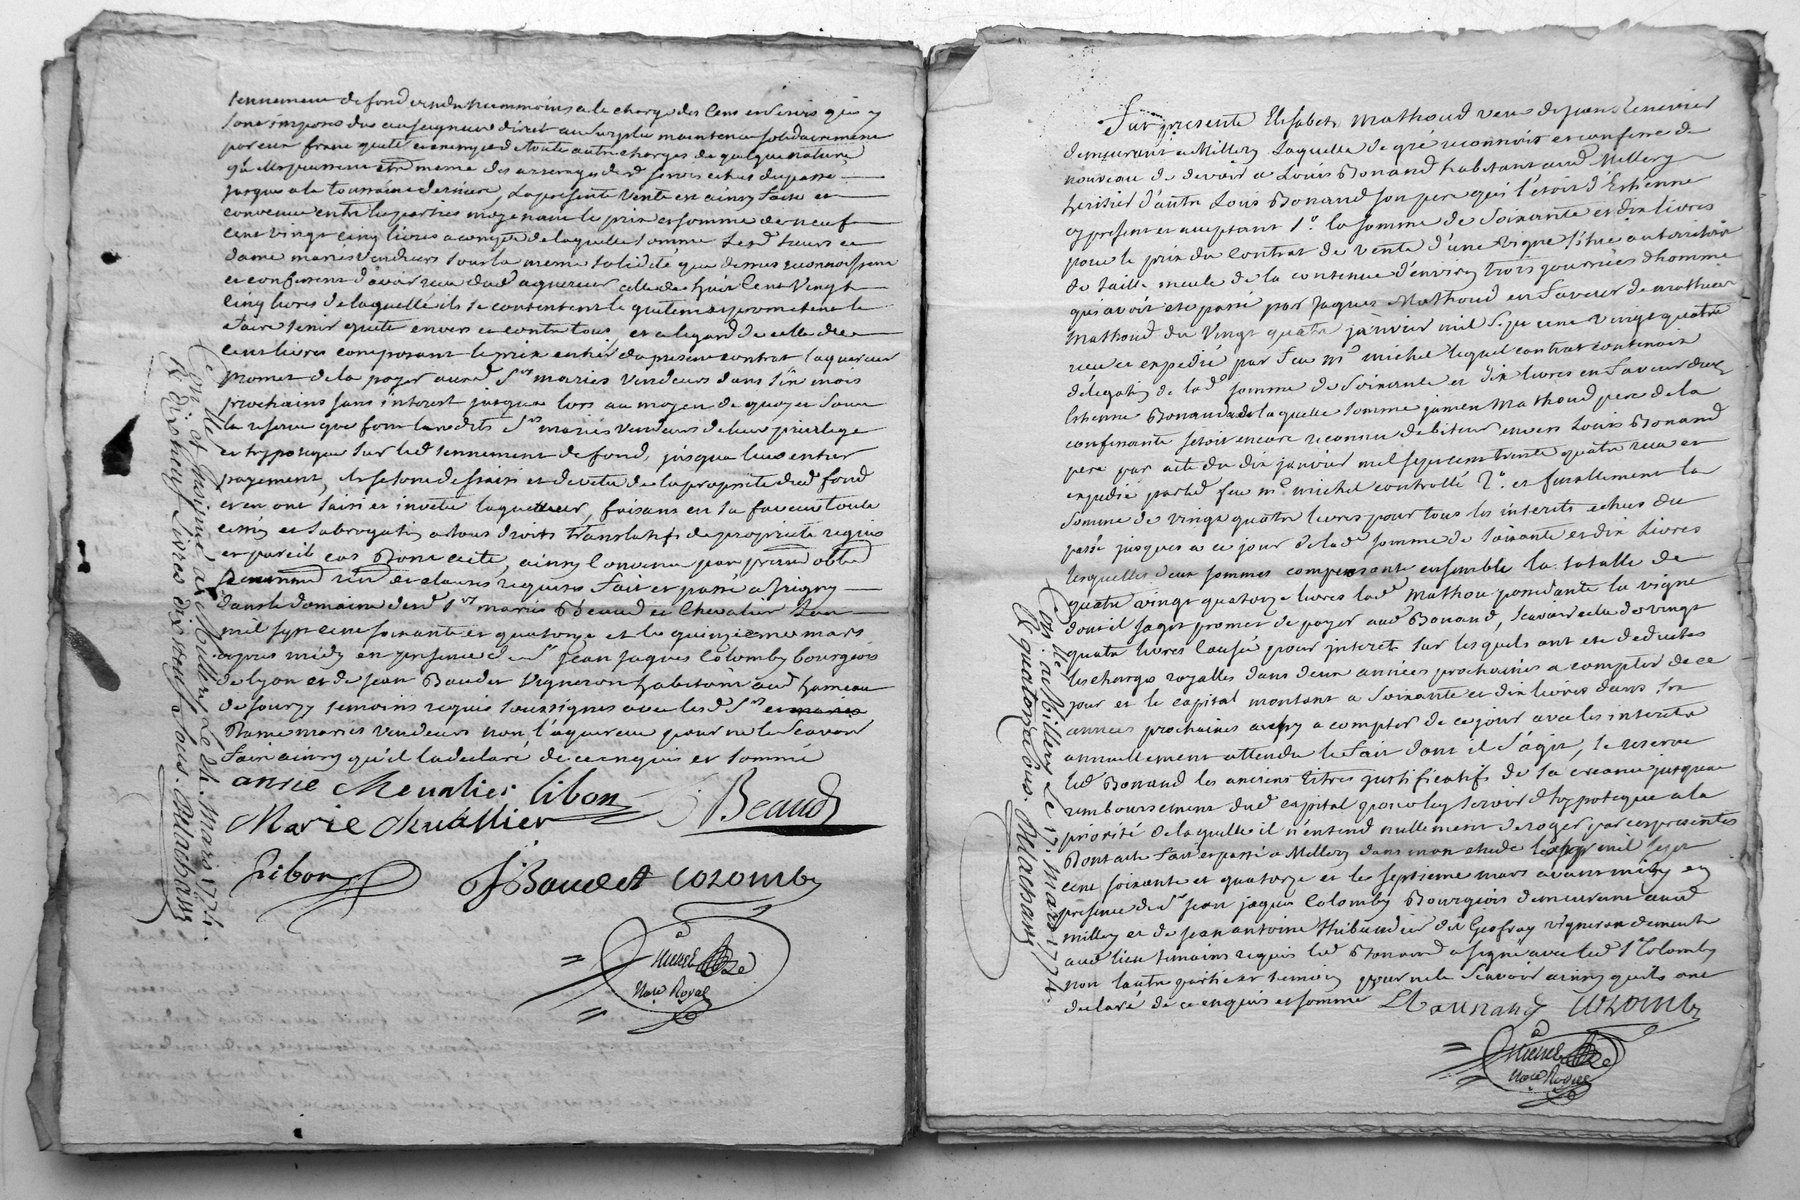 tennement de fond vendu neammoins a la charge des Cens et Servis qui y
sont imposés dus au seigneur direct au surplus maintenu solidairement
par eux franc quitte et exempt de toute autre charges de quelque nature
qu'elles puissent etre meme des arrerages desd servis echus du passé
jusques a la toussaint derniere, La presente vente est ainsy faite et
convenue entre les parties moyenant le prix et somme de neuf
cent vingt cinq livres a compte de laquelle somme Lesd sieurs et
dame mariés vendeurs sous la meme solidité que dessus reconnoissent
et confessent d'avoir reçu dud aquereur celle de huit Cent Vingt
cinq livres de laquelle ils se contentent le quittent et promettent le
faire tenir quitte envers et contre tous, et a legard de celle de
cent livres composant le prix entier du present contrat l'aquereur
promet de la payer auxd Srs mariés vendeurs dans six mois
prochains sans interest jusqu'a lors au moyen de quoy et sous
la reserve que font lesdits Srs mariés vendeurs de leur privilege
et hypoteque sur led tennement de fond, jusqua leur entier
payement, ils se sont dessaisis et devetu de la propriété dud fond
et en ont saisi et investi laquereur, faisant en sa faveur toute
cession et subrogation a tous droits translatifs de propriété requis
en pareil cas Dont acte, ainsy convenu par promesse oblion
soumission ren on et clauses requises Fait et passé a Grigny
dans le domaine desd Srs mariés Beaud et Chevalier Lan
mil sept cent soixante et quatorze et le quinzieme mars
apres midy en presence de Sr Jean Jaques Colomby bourgeois
de Lyon et de Jean Baudet vigneron habitant aud hameau
de Sourzy temoins requis soussignés avec lesd Srs et mariés
Dame mariés vendeurs non l'aquereur pour ne le scavoir
faire ainsy qu'il la declaré de ce enquis et sommé
anne Chevalier Ribon Beaud
Marie Chevallier
Ribon JBaudet colomby
Notre Royal
Conllé et Insinué a Millery Le 24. Mars 1774.
R. dixneuf Livres dix huit sous.
Fut presente Elisabeth Mathoud veve de Jean
demeurant a Millery Laquelle de gré reconnois et confesse de
nouveau de devoir a Louis Bonand habitant aud Millery
heritier d'autre Louis Bonand son pere qui l'etoit d'Estienne
cy present et acceptant 1o. la somme de Soixante et dix livres
pour le prix du Contrat de vente d'une vigne située au territoire
de taille meule de la contenue d'environ trois journées dhomme
qui avoit eté passé par Jaques Mathoud en faveur de mathieu
Mathoud du vingt quatre janvier mil sept cent vingt quatre
recu et expedié par feu Me michel lequel contrat contenoit
délégation de lade somme de Soixante et dix livres en faveur dud
Estienne Bonand de laquelle somme jamen Mathoud pere de la
confessante setoit encore reconnu debiteur envers Louis Bonand
pere par acte du dix janvier mil sept cent trente quatre recu et
expedié par led feu Me michel controllé 2o. et finallement la
somme de vingt quatre livres pour tous les interets echus du
passé jusques a ce jour de lade somme de soixante et dix Livres
lesquelles deux sommes composant ensemble la totalle de
quatre vingt quatorze livres lad Mathou possedante la vigne
dont il sagit promet de payer aud Bonand, scavoir celle de vingt
quatre livres causée pour interets sur lesquels ont eté deduites
les charges royalles dans deux années prochaines a compter de ce
jour et le capital montant a soixante et dix livres dans six
années prochaines aussy a compter de ce jour avec les interets
annuellement attendu le fait dont il s'agit, se reserve
led Bonand les anciens titres justificatifs de sa creance jusqu'au
remboursement dud capital pour luy servir d'hypoteque a la
priorité de laquelle il n'entend nullement deroger par ces presentes
Dont acte fait et passé a Millery dans mon etude lan mil sept
cent soixante et quatorze et le septieme mars avant midy en
presence de Sr Jean jaques Colomby Bourgeois demeurant aud
millery et de jean antoine Thibaudier dit Geofray vigneron demeurt
aud lieu temoins requis led Bonand a signé avec led Sr Colomby
non lautre partie et temoin pour ne le scavoir ainsy qu'ils ont
declaré de ce enquis et sommé LBounand colomby
Notre Royal
Conllé a Millery Le 17. Mars 1774.
R. quatorze sous.